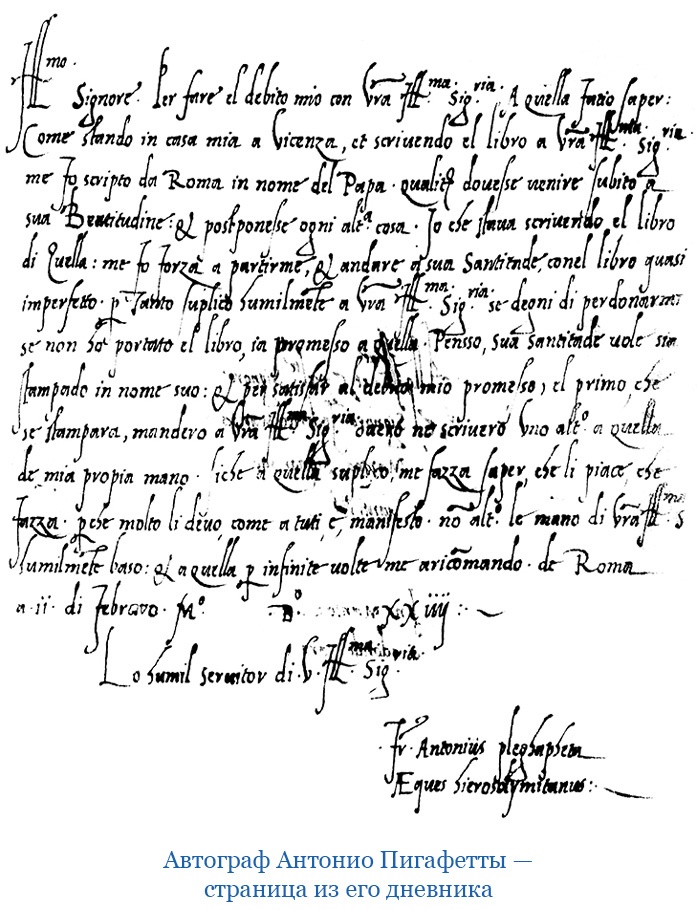 Ill.mo
Signore. Per fare el debito mio con Vra Ill.ma Sig.ria. A quella facio saper:
Come stando in casa mia a Vicenza, et scrivendo el libro a Vra Ill.ma Sig.ria.
me fo scripto da Roma in nome del Papa. dovesse venire subito a
sua Beatitudine: & postponesse ogni alt.a cosa. Io che stava scrivendo el libro
di Quella: me fo forza a partirme, & andare a sua Santitade, con el libro quasi
imperfetto. p Tanto suplico humilmēte a Vra Ill.ma Sig.ria. se degni di perdonarmi
se non ho portato el libro, ia promesso a quella. Pensso, sua Santitade vole sia
stampado in nome suo: & per satisfar al debito mio promesso, el primo che
se stampara, mandero a Vra Ill.ma Sig.ria. overo ne scrivero Vno alt.o a quella
de mia propia mano. siche a quella suplico, me fazza saper, che li piace che
fazza. pche molto li devo, come a tuti e manifesto. nō alt.o le mano di Vra Ill.ma S
humilmēte baso: & a quella p infinite volte me aricōmando. de Roma
a ii. di Febravo. M.o D.o XXiiij:
Lo humil servitor di V. Ill.ma Sig.ria.
Fr. Antonius pleghapheta
Æques hierosolymitanus:
Автограф Антонио Пигафетты —
страница из его дневника